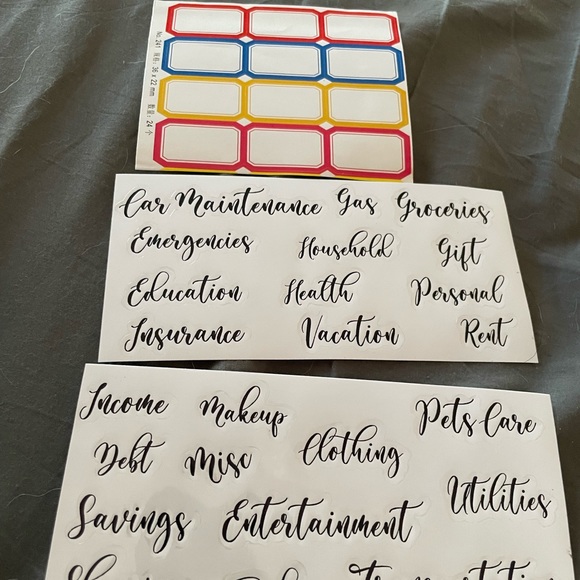 No. 241 规格: 36 x 22 mm 数量: 24 个
Car Maintenance Gas Groceries
Emergencies Household Gift
Education Health Personal
Insurance Vacation Rent
Income Makeup Pets Care
Debt Misc Clothing
Utilities
Savings Entertainment